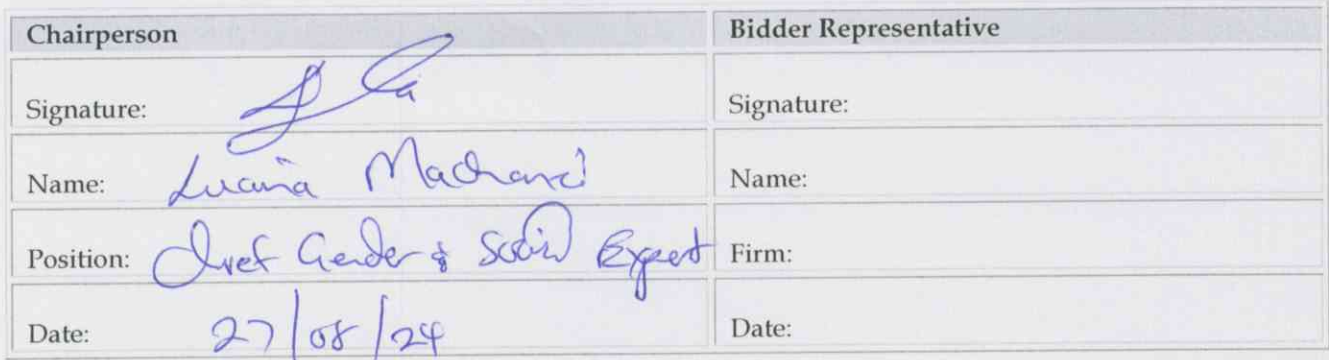 Chairperson Bidder Representative
Signature: Signature:
Name: Name:
Position: Chief Gender & Social Expert Firm:
Date: 27/08/24 Date: